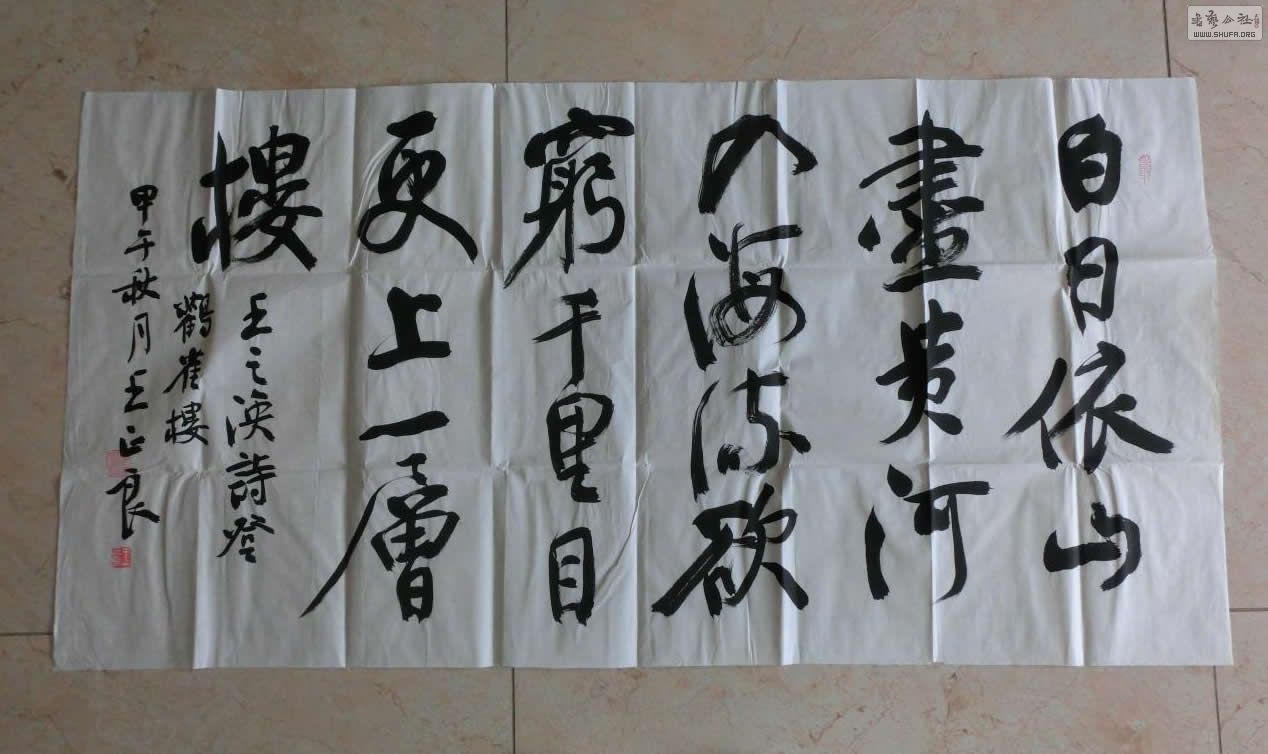 白日依山
盡黄河
入海流欲
窮千里目
更上一層
樓
王之渙詩登
鸛雀樓
甲午秋月王正良
書藝公社
WWW.SHUFA.ORG